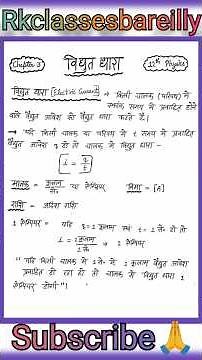 Rkclassesbareilly
Chapter 3
विद्युत धारा
12th Physics
विद्युत धारा (Electric Current) → किसी चालक (परिपथ) में
एकांक समय में प्रवाहित होने
वाले वैद्युत आवेश को वैद्युत धारा कहते हैं।
→ यदि किसी चालक या परिपथ में t समय में प्रवाहित
वैद्युत आवेश q हो तो चालक में विद्युत धारा -
i = q/t
मात्रक = कूलाम/से० या ऐम्पियर
विमा = [A]
राशि = अदिश राशि
1 ऐम्पियर = यदि q = 1 कूलाम एवं t = 1 से० हो तो
i = 1 कूलाम/1 से० = 1 ऐम्पियर
"यदि किसी चालक में 1 से० में 1 कूलाम वैद्युत आवेश
प्रवाहित हो रहा हो तो चालक में विद्युत धारा 1
ऐम्पियर होगी"।
Subscribe🙏